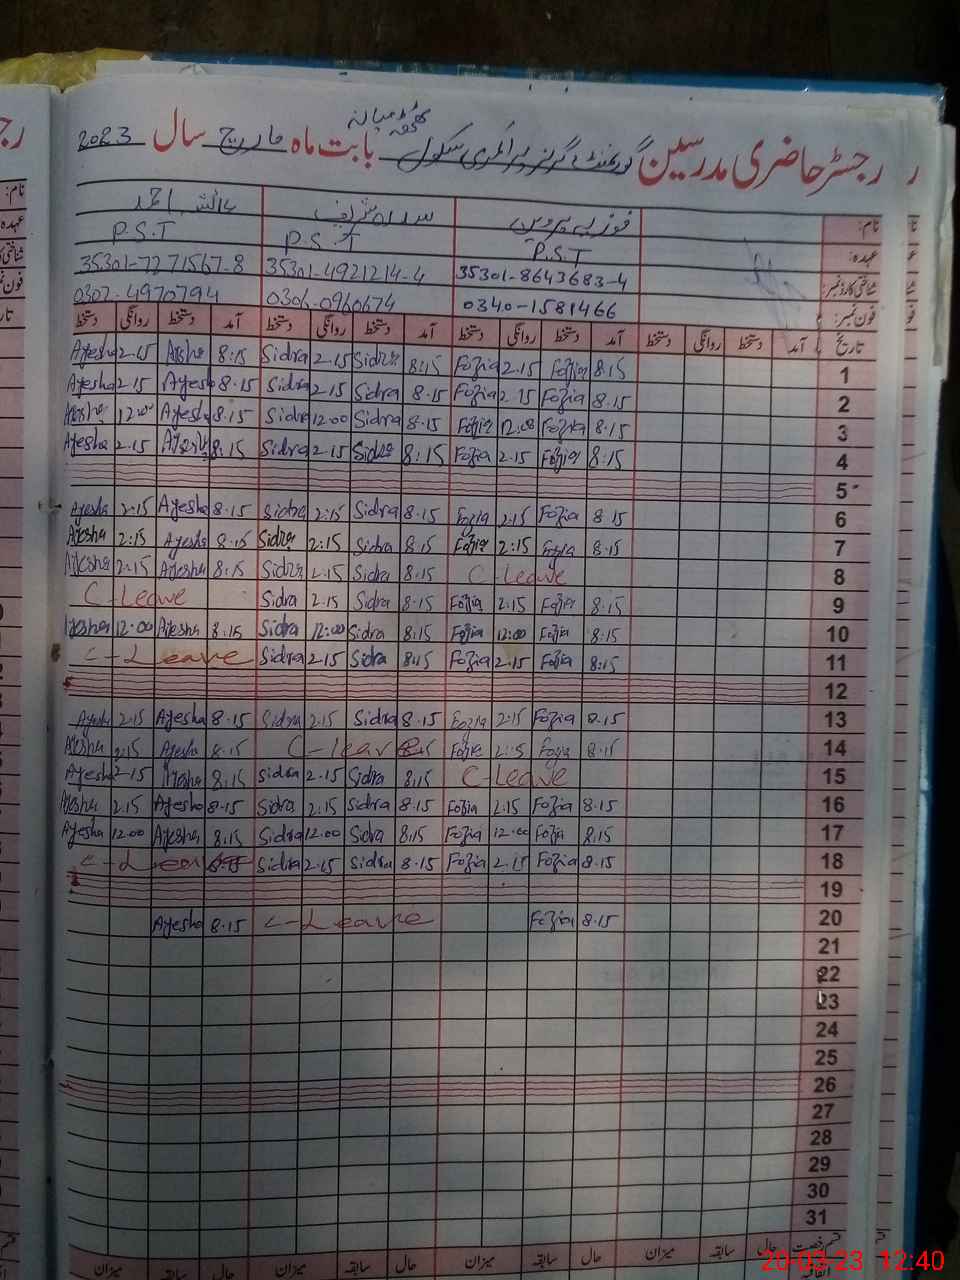 رجسٹر حاضری مدرسین گورنمنٹ گرلز پرائمری سکول بابت ماہ مارچ سال 2023
نام: فوزیہ پروین سدرہ شریف عائشہ احمد
عہدہ: P.S.T P.S.T P.S.T
شناختی کارڈ نمبر: 35301-8643683-4 35301-4921214-4 35301-7271567-8
فون نمبر: 0340-1581466 0306-0960674 0307-4970794
تاریخ آمد دستخط روانگی دستخط آمد دستخط روانگی دستخط آمد دستخط روانگی دستخط آمد دستخط روانگی دستخط
Ayesha 2.15 Aysha 8:15 Sidra 2.15 Sidra 8:15 Fozia 2.15 Fozia 8.15 1
Ayesha 2.15 Ayesha 8.15 Sidra 2.15 Sidra 8.15 Fozia 2.15 Fozia 8.15 2
Ayesha 12.00 Ayesha 8.15 Sidra 12.00 Sidra 8.15 Fozia 12.00 Fozia 8.15 3
Ayesha 2.15 Ayesha 8:15 Sidra 2.15 Sidra 8:15 Fozia 2.15 Fozia 8:15 4
5
Ayesha 2.15 Ayesha 8.15 Sidra 2:15 Sidra 8.15 Fozia 2.15 Fozia 8.15 6
Ayesha 2:15 Ayesha 8.15 Sidra 2:15 Sidra 8.15 Fozia 2:15 Fozia 8.15 7
Ayesha 2:15 Ayesha 8:15 Sidra 2.15 Sidra 8.15 C-Leave 8
C-Leave Sidra 2.15 Sidra 8.15 Fozia 2.15 Fozia 8.15 9
Ayesha 12:00 Ayesha 8:15 Sidra 12:00 Sidra 8:15 Fozia 12:00 Fozia 8:15 10
C-Leave Sidra 2.15 Sidra 8:15 Fozia 2.15 Fozia 8:15 11
12
Ayesha 2.15 Ayesha 8.15 Sidra 2.15 Sidra 8.15 Fozia 2.15 Fozia 8.15 13
Ayesha 2.15 Ayesha 8.15 C-leave Fozia 2.15 Fozia 8.15 14
Ayesha 2.15 Ayesha 8:15 Sidra 2.15 Sidra 8.15 C-Leave 15
Ayesha 2.15 Ayesha 8.15 Sidra 2.15 Sidra 8.15 Fozia 2.15 Fozia 8.15 16
Ayesha 12.00 Ayesha 8.15 Sidra 12.00 Sidra 8.15 Fozia 12.00 Fozia 8.15 17
C-Leave Sidra 2.15 Sidra 8.15 Fozia 2.15 Fozia 8.15 18
19
Ayesha 8.15 C-Leave Fozia 8.15 20
21
22
23
24
25
26
27
28
29
30
31
قسم رخصت حال سابقہ میزان حال سابقہ میزان حال سابقہ میزان حال سابقہ میزان
20-03-23 12:40